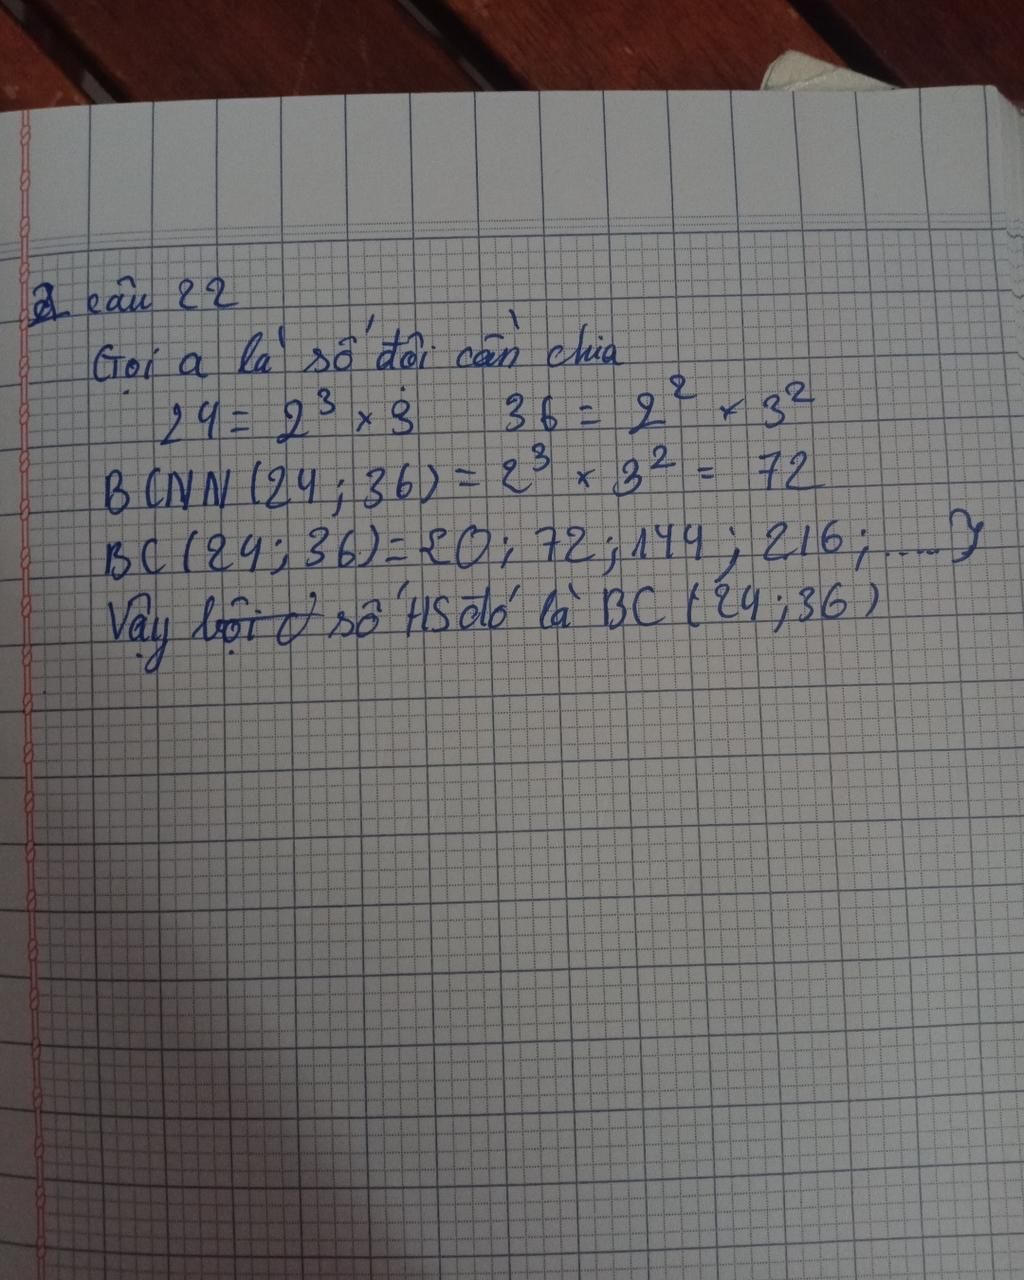 câu 22
Gọi a là số đội cần chia
24 = 2³ × 3 36 = 2² × 3²
BCNN (24 ; 36) = 2³ × 3² = 72
BC (24 ; 36) = {0 ; 72 ; 144 ; 216 ; .... }
Vậy số HS đó là BC (24 ; 36)